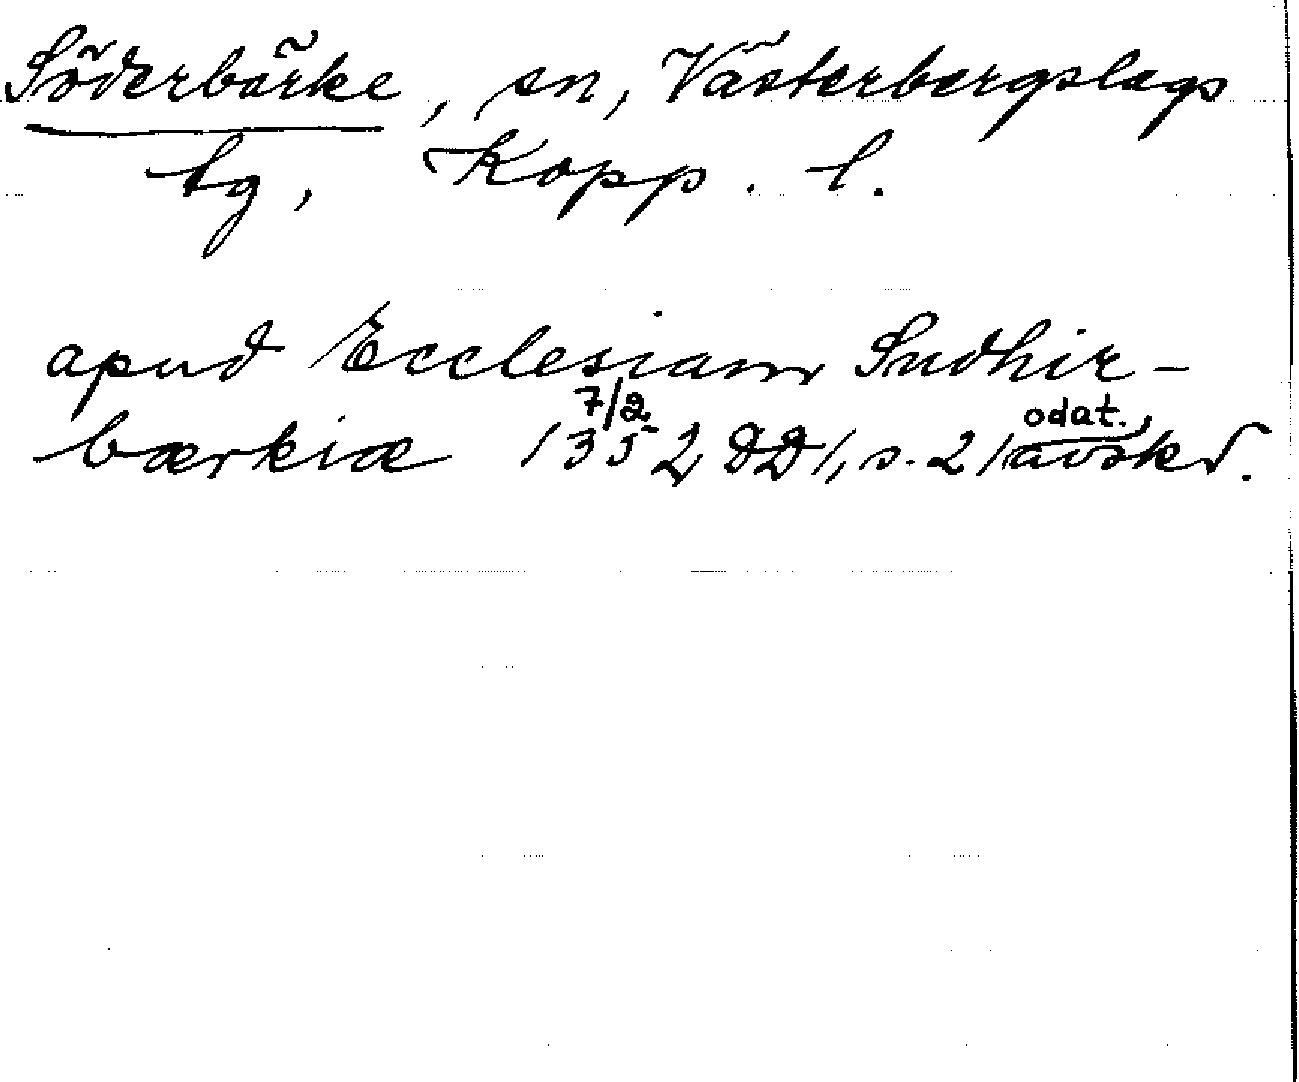 Söderbärke, sn, Västerbergslags
tg, Kopp. l.
apud Ecclesiam Sudhir-
bærkiæ 1352 DD1, s. 21 avskr.
7/2
odat.